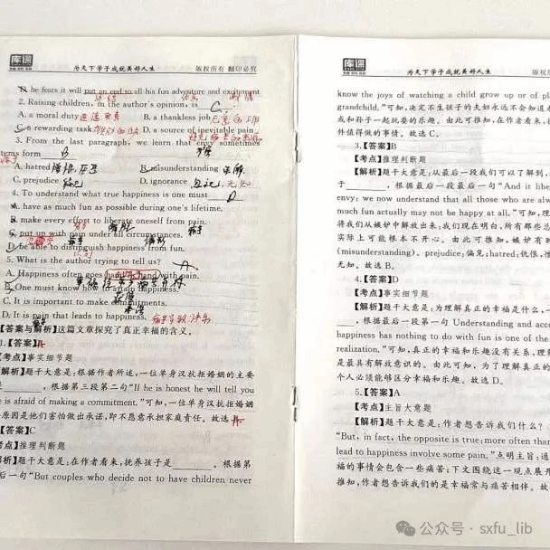 库课
为天下学子成就美好人生
版权所有 翻印必究
he fears it will put an end to all his fun adventure and excitement
2. Raising children, in the author's opinion, is C.
A. a moral duty
B. a thankless job
C. a rewarding task
D. a source of inevitable pain
3. From the last paragraph, we learn that envy sometimes
stems from B
A. hatred
B. misunderstanding
C. prejudice 偏见
D. ignorance
4. To understand what true happiness is one must D
A. have as much fun as possible during one's lifetime.
B. make every effort to liberate oneself from pain.
C. put up with pain under all circumstances.
D. be able to distinguish happiness from fun.
5. What is the author trying to tell us? A
A. Happiness often goes hand in hand with pain.
B. One must know how to attain happiness.
C. It is important to make commitments.
D. It is pain that leads to happiness.
【答案与解析】这篇文章探究了真正幸福的含义。
1.【答案】A
【考点】事实细节题
【解析】题干大意是:根据作者所述,一位单身汉抗拒婚姻的主要
,根据第三段第二句"If he is honest he will tell you
he is afraid of making a commitment."可知,一位单身汉抗拒婚姻
原因是他们害怕做出承诺,即不愿意承担家庭责任。故选A
【答案】C
【考点】推理判断题
【解析】题干大意是:在作者看来,抚养孩子是______。根据第
后一句"But couples who decide not to have children never
为天下学子成就美好人生
版权所
know the joys of watching a child grow up or of pl
grandchild."可知,决定不生孩子的夫妇永远不会知道
孙子一起玩耍的乐趣。由此可推知,在作者看来,
件值得做的事情。故选C。
3.【答案】B
【考点】推理判断题
【解析】题干大意是:从最后一段我们可以了解到,
,根据最后一段最后一句"And it libe
envy: we now understand that all those who are alwa
much fun actually may not be happy at all."可知,
们从嫉妒中解放出来:我们现在明白,所有那些总
实际上可能根本不开心。由此可推知,嫉妒有
(misunderstanding)。prejudice:偏见;hatred:仇恨,憎
无知。故选B。
4.【答案】D
【解析】题干大意是:为理解真正的幸福是什么,一
,根据最后一段第一句 Understanding and acce
happiness has nothing to do with fun is one of the
realization."可知,真正的幸福和乐趣没有关系,
是最具有解放意识的。由此可知,为了理解真正的
个人必须能够区分幸福和乐趣。故选D。
5.【答案】A
【考点】主旨大意题
【解析】题干大意是:作者想告诉我们什么?
"But, in fact, the opposite is true: more often than
lead to happiness involve some pain."点明主旨:通
福的事情会包含一些痛苦;下文围绕这一观点展开
推知,作者想告诉我们的是幸福常与痛苦相伴。故
公众号 · sxfu_lib